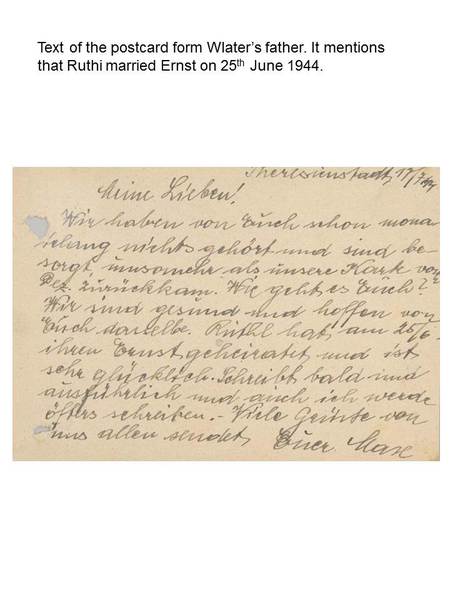 Text of the postcard form Wlater’s father. It mentions
that Ruthi married Ernst on 25th June 1944.
Theresienstadt, 17/7 44
Meine Lieben!
Wir haben von Euch schon mona
telang nichts gehört und sind be-
sorgt, umsomehr als unsere Karte von
Dez. zurückkam. Wie geht es Euch?
Wir sind gesund und hoffen von
Euch dasselbe. Ruthl hat am 25/6
ihren Ernst geheiratet und ist
sehr glücklich. Schreibt bald und
ausführlich und auch ich werde
öfters schreiben. - Viele Grüsse von
uns allen sendet Euer Max